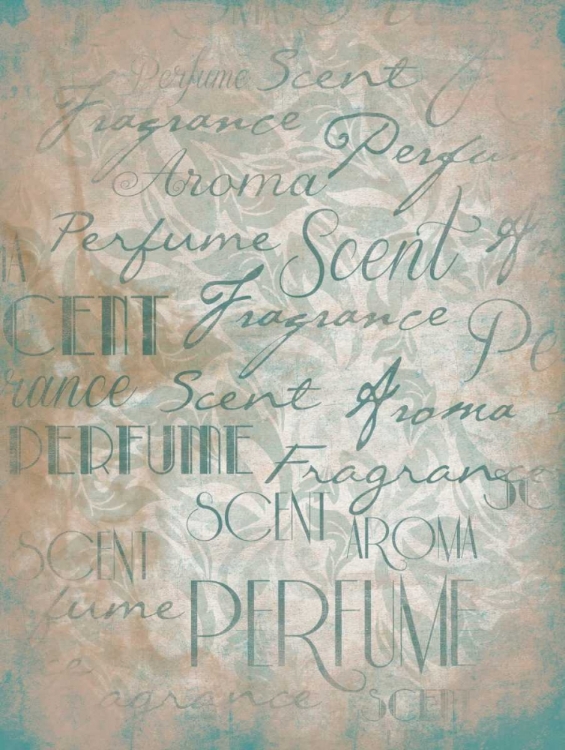 Perfume Scent
Fragrance Perfu
Aroma
Perfume Scent A
MA
CENT Fragrance Pe
rance Scent Aroma
PERFUME Fragrance
SC
SCENT AROMA
SCENT
fume PERFUME
agrance SCENT